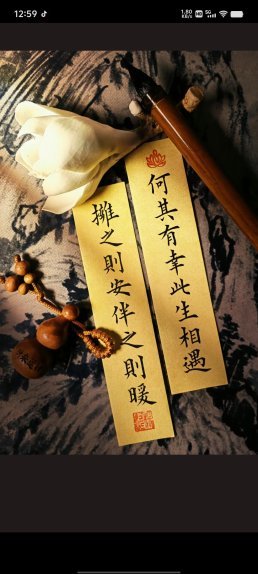 12:59
1.80
KB/s
5G
何其有幸此生相遇
擁之則安伴之則暖